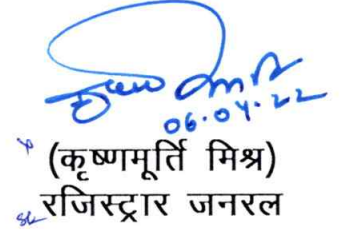 06.04.22
(कृष्णमूर्ति मिश्र)
रजिस्ट्रार जनरल